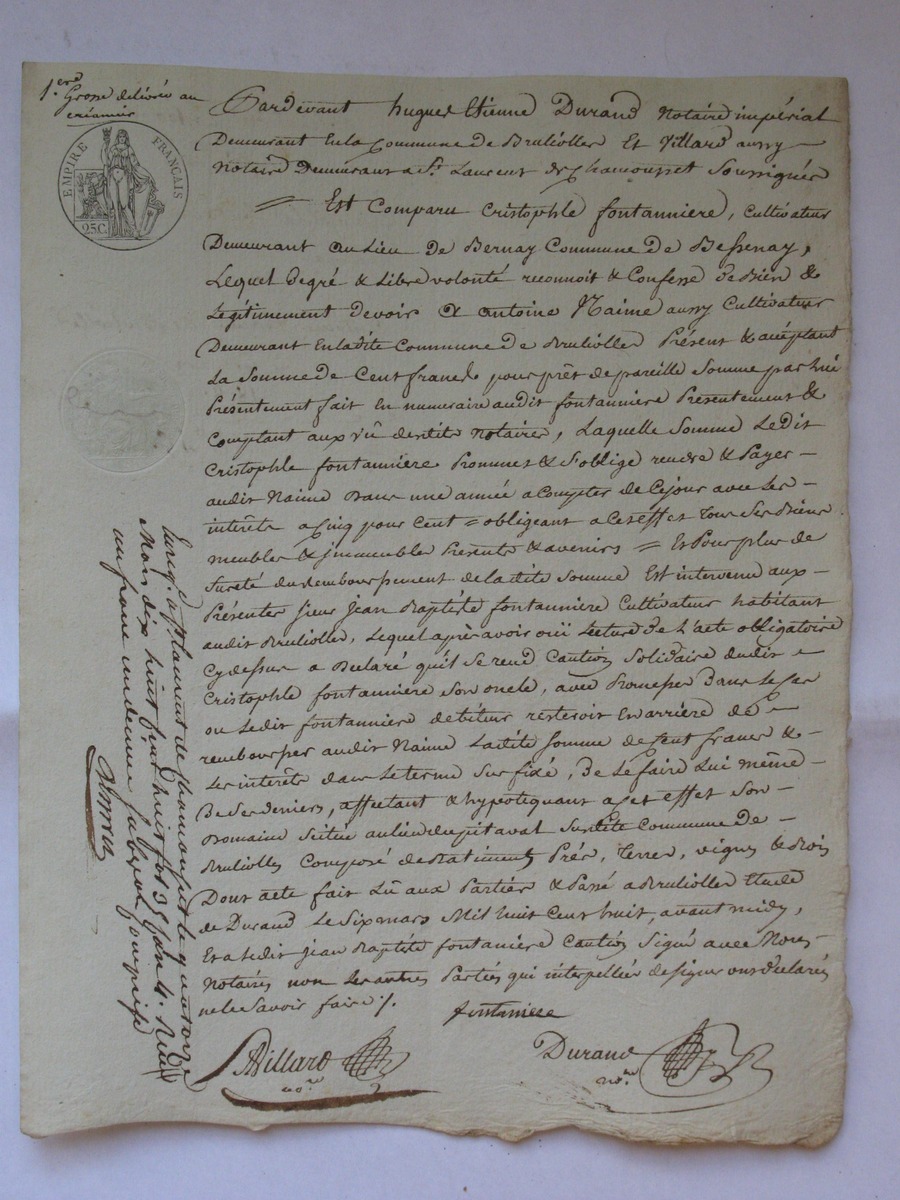 1.ere
Grosse délivrée au
créancier
EMPIRE FRANÇAIS
25C.
Pardevant hugues Etienne Durand Notaire impérial
Demeurant En la Commune de Brulioles Et Villard aussy
Notaire Demeurant a St. Laurent de Chamousset Soussignés
= Est Comparu Cristophle fontanniere, Cultivateur
Demeurant au Lieu de Bernay Commune de Bessenay,
Lequel de gré & Libre volonté reconnoit & Confesse de Bien &
Légitimement devoir a antoine Naime aussy Cultivateur
Demeurant En ladite Commune de Brulioles Présent & acéptant
La Somme de Cent francs pour prêt de pareille Somme par lui
Présentement fait En numeraire audit fontanniere Présentement &
Comptant aux vû desdits Notaires, Laquelle Somme Ledit
Cristophle fontanniere Promet & S'oblige rendre & Payer
audit Naime Dans une année a Compter de Cejour avec Les
intérêts a Cinq pour Cent = obligeant a Cet effet Tous Ses Biens
meubles & immeubles Présents & avenirs = Et Pour plus de
Sureté du Remboursement de ladite Somme Est intervenu aux
Présentes Sieur Jean Baptiste fontanniere Cultivateur habitant
audit Brulioles, Lequel après avoir oüi Lecture de L'acte obligatoire
Cy dessus a Déclaré qu'il Se rend Caution Solidaire dudit
Cristophle fontanniere Son oncle, avec Promesse Dans Le Cas
ou Ledit fontanniere débiteur resteroit En arriere de
rembourser audit Naime Ladite Somme de Cent francs &
Les intérêts dans Le terme Sus fixé, De Le faire Lui même
De Ses deniers, affectant & hypotiquant a Cet effet Son
Domaine Scitué au lieu du putaval Susdite Commune de
Brulioles Composé de Batiments Prés, Terres, vignes & Bois
Dont acte fait Lû aux Parties & Passé a Brulioles Etude
de Durand Le Six mars Mil huit Cent huit, avant midy,
Et a Ledit Jean Baptiste fontaniere Caution Signé avec Nous
Notaires non Les autres Parties qui interpellées de Signer ont Déclarés
ne le Savoir faire /.
fontaniere
Villard
no.re
Durand
no.re
Enreg. a St. Laurent de Chamousset le quatorze
Mars dix huit cent huit fol 39
un franc un decime Subvon Comprise